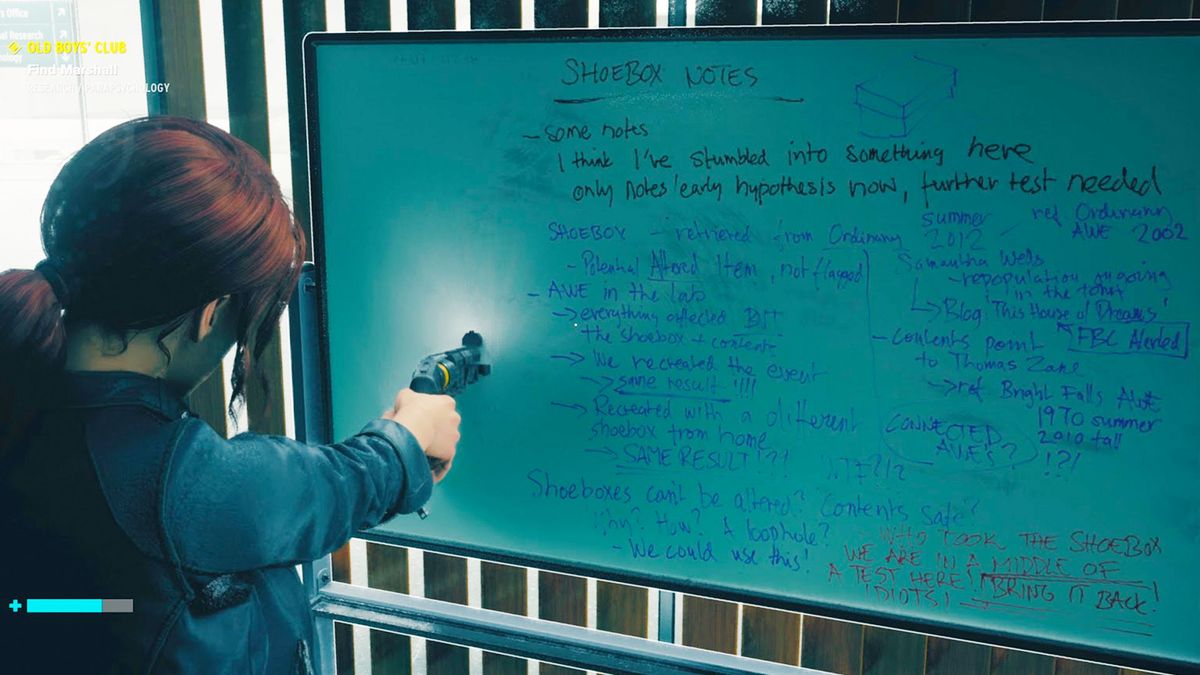 's Office
al Research
OLD BOYS' CLUB
Find Marshall
RESEARCH / PARAPSYCHOLOGY
SHOEBOX NOTES
- some notes
I think I've stumbled into something here
only notes / early hypothesis now, further test needed
SHOEBOX - retrieved from Ordinary
- Potential Altered Item, not flagged
- AWE in the lab
→ everything affected BUT
the shoebox + contents
→ We recreated the event
→ same result !!!!
→ Recreated with a different
shoebox from home
→ SAME RESULT!?!
summer
2012
ref Ordinary
AWE 2002
Samantha Wells
- repopulation ongoing
in the town
→ Blog: 'This House of Dreams'
FBC Alerted
- Contents point
to Thomas Zane
→ ref Bright Falls AWE
1970 summer
2010 fall
!?!
CONNECTED
AWEs?
WTF?!?
Shoeboxes can't be altered? Contents safe?
Why? How? A loophole?
- We could use this!
WHO TOOK THE SHOEBOX
WE ARE IN A MIDDLE OF
A TEST HERE! BRING IT BACK!
IDIOTS!